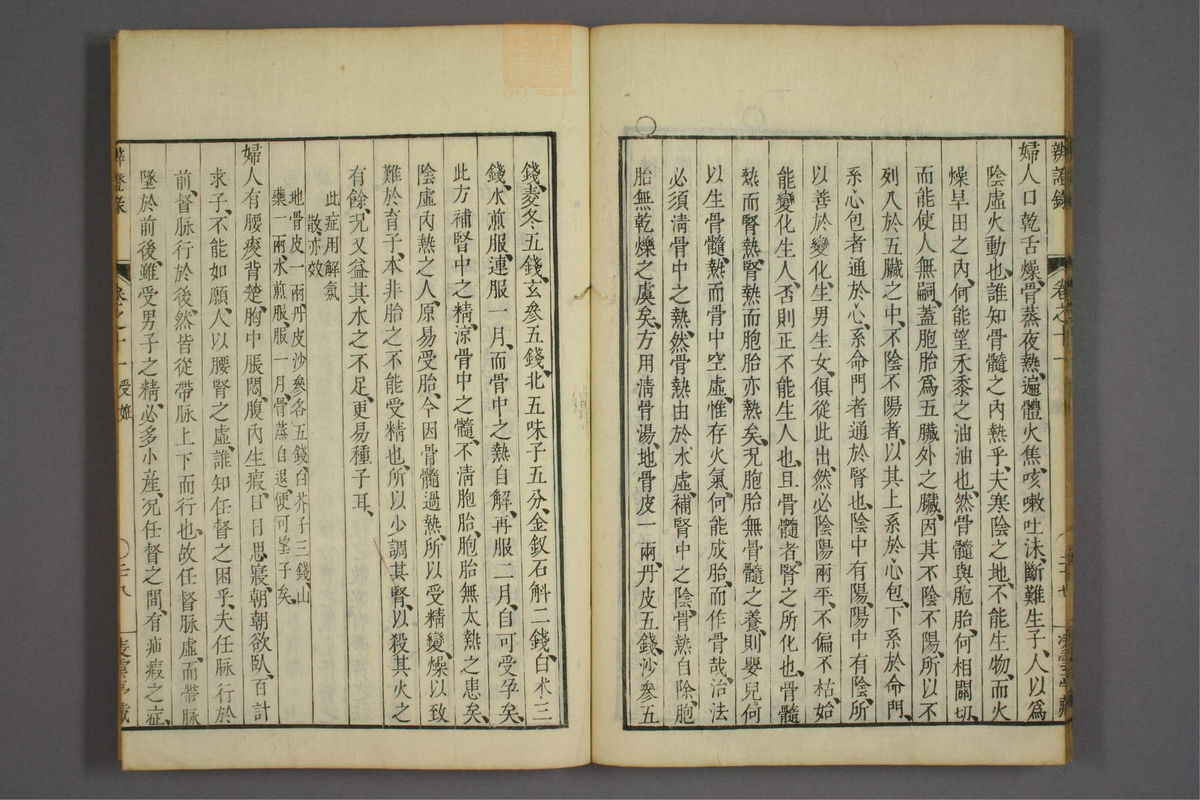 辨證錄 卷之十一
婦人口乾舌燥、骨蒸夜熱、遍體火焦、咳嗽吐沫、斷難生子、人以爲
陰虛火動也、誰知骨髓之內熱乎、夫寒陰之地、不能生物、而火
燥旱田之內、何能望禾黍之油油也、然骨髓與胞胎、何相關切、
而能使人無嗣、蓋胞胎爲五臟外之臟、因其不陰不陽、所以不
列入於五臟之中、不陰不陽者、以其上系於心包、下系於命門、
系心包者通於心、系命門者通於腎也、陰中有陽、陽中有陰、所
以善於變化、生男生女、俱從此出、然必陰陽兩平、不偏不枯、始
能變化生人、否則正不能生人也、且骨髓者、腎之所化也、骨髓
熱而腎熱、腎熱而胞胎亦熱矣、況胞胎無骨髓之養、則嬰兒何
以生骨髓、熱而骨中空虛、惟存火氣、何能成胎而作骨哉、治法
必須清骨中之熱、然骨熱由於水虛、補腎中之陰、骨熱自除、胞
胎無乾爍之虞矣、方用清骨湯、地骨皮一兩、丹皮五錢、沙參五
錢、麥冬五錢、玄參五錢、北五味子五分、金釵石斛二錢、白朮三
錢、水煎服、連服一月、而骨中之熱自解、再服二月、自可受孕矣、
此方補腎中之精、涼骨中之髓、不清胞胎、胞胎無太熱之患矣、
陰虛內熱之人、原易受胎、今因骨髓過熱、所以受精變燥、以致
難於育子、本非胎之不能受精也、所以少調其腎、以殺其火之
有餘、況又益其水之不足、更易種子耳、
此症用解氛
散亦效
地骨皮一兩、丹皮沙參各五錢、白芥子三錢、山
藥一兩、水煎服、服一月、骨蒸自退、便可望子矣、
婦人有腰痠背楚、胸中脹悶、腹內生瘕、日日思寢、朝朝欲臥、百計
求子、不能如願、人以腰腎之虛、誰知任督之困乎、夫任脉行於
前、督脉行於後、然皆從帶脉上下而行也、故任督脉虛、而帶脉
墜於前後、雖受男子之精、必多小産、況任督之間、有疝瘕之症、
辨證錄 卷之十一